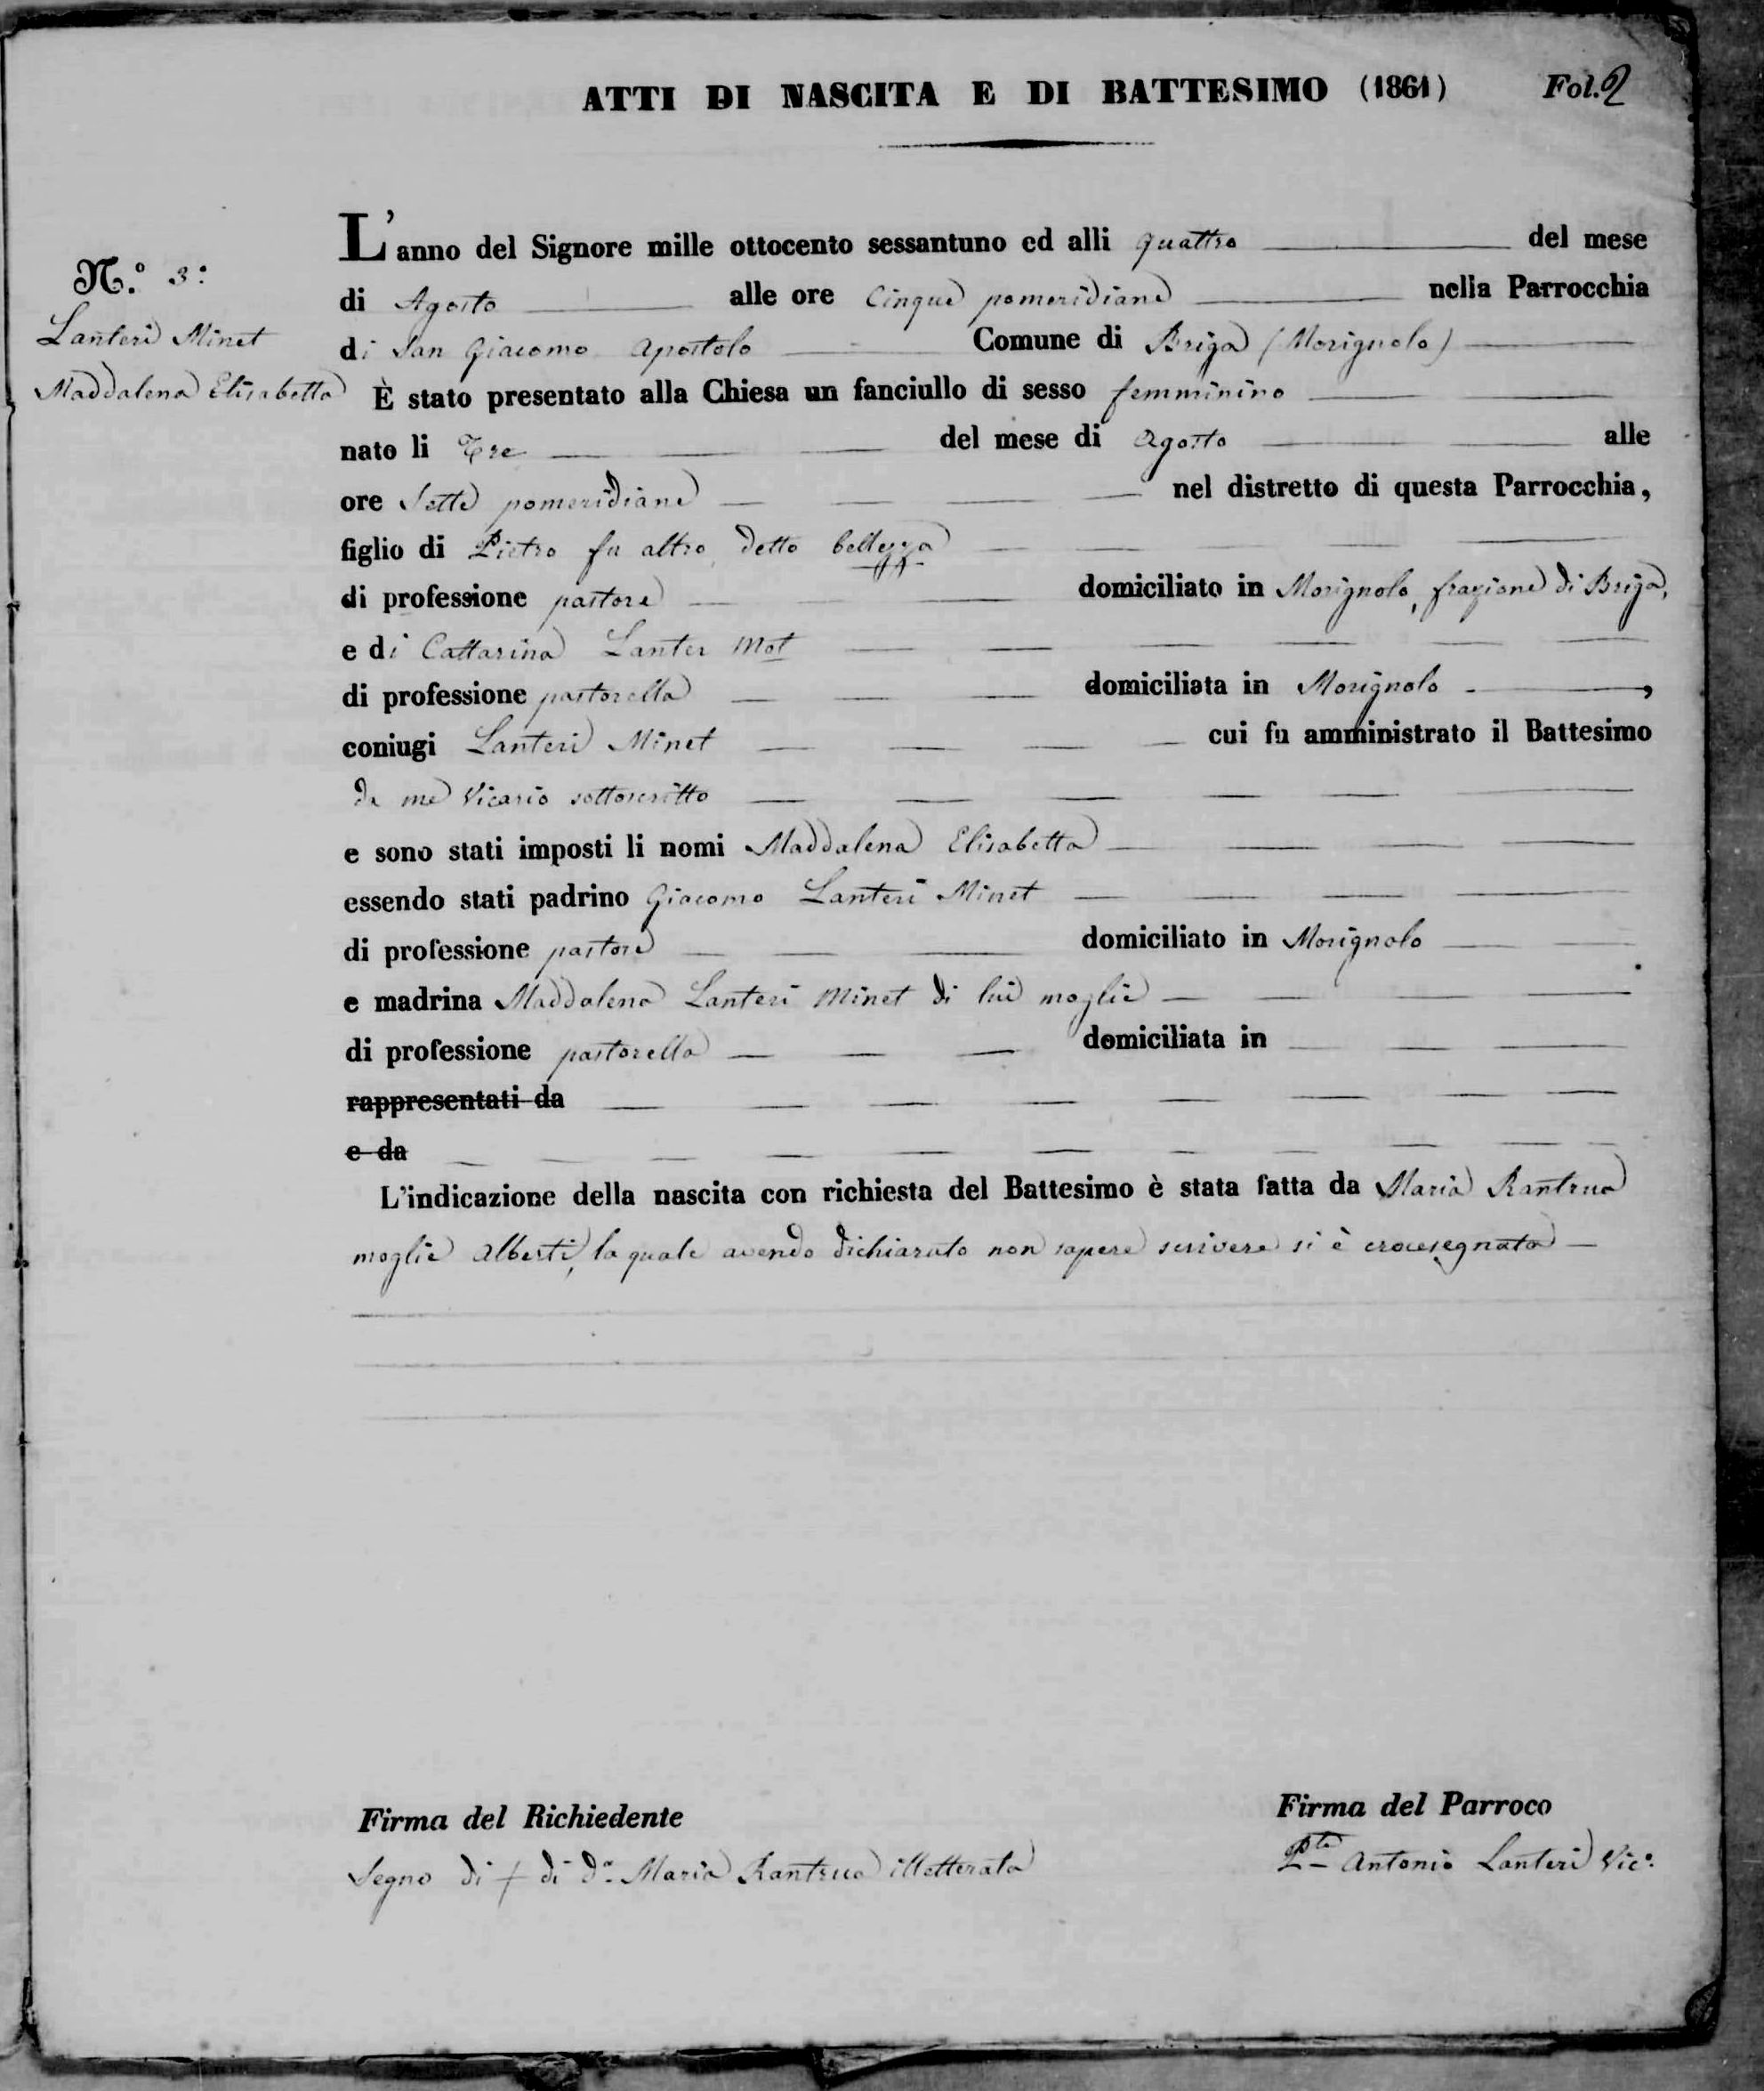 ATTI DI NASCITA E DI BATTESIMO (1861) Fol. 2
N.° 3:
Lanteri Minet
Maddalena Elisabetta
L'anno del Signore mille ottocento sessantuno ed alli quattro del mese
di Agosto alle ore Cinque pomeridiane nella Parrocchia
di San Giacomo Apostolo Comune di Briga (Morignolo)
È stato presentato alla Chiesa un fanciullo di sesso femminino
nato li Tre del mese di Agosto alle
ore Sette pomeridiane nel distretto di questa Parrocchia,
figlio di Pietro fu altro, detto bellezza
di professione pastore domiciliato in Morignolo, frazione di Briga,
e di Cattarina Lanter Mot
di professione pastorella domiciliata in Morignolo,
coniugi Lanteri Minet cui fu amministrato il Battesimo
da me Vicario sottoscritto
e sono stati imposti li nomi Maddalena Elisabetta
essendo stati padrino Giacomo Lanteri Minet
di professione pastore domiciliato in Morignolo
e madrina Maddalena Lanteri Minet di lui moglie
di professione pastorella domiciliata in
rappresentati da
e da
L'indicazione della nascita con richiesta del Battesimo è stata fatta da Maria Rantrua
moglie Alberti, la quale avendo dichiarato non sapere scrivere si è crocesegnata
Firma del Richiedente
Segno di + di d.ª Maria Rantrua illetterata
Firma del Parroco
Pte Antonio Lanteri Vic.°